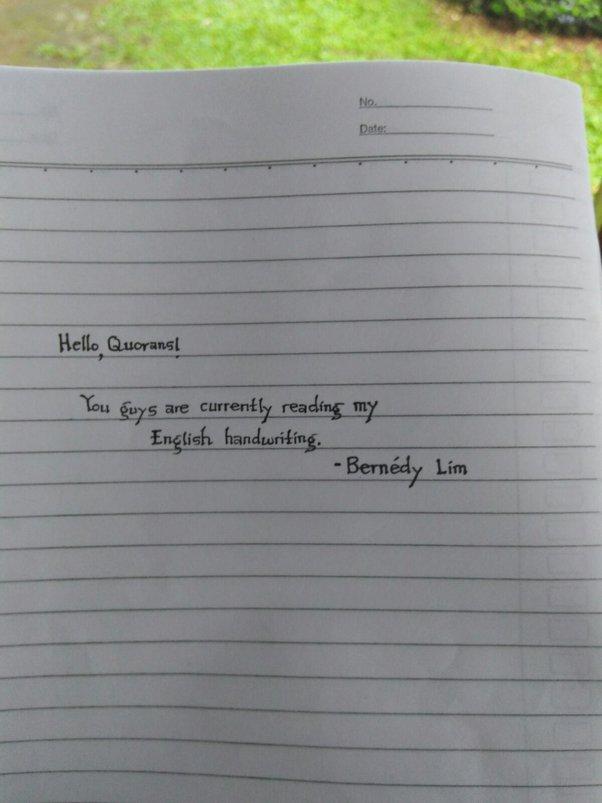 No.
Date:
Hello, Quorans!
You guys are currently reading my
English handwriting.
- Bernédy Lim